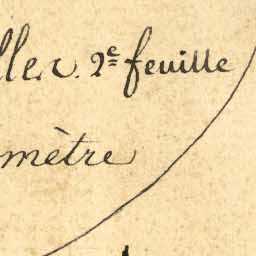 ller. 2e feuille
mètre